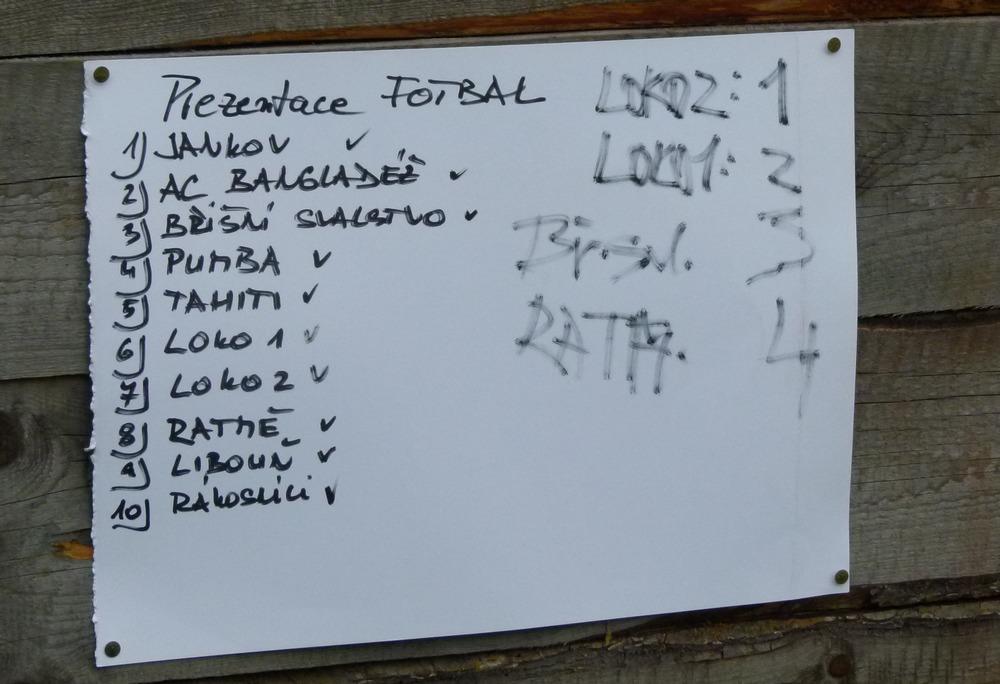 Prezentace FOTBAL
1) JANKOV ✓
2) AC BANGLADÉŽ ✓
3) BŘIŠNÍ SVALSTVO ✓
4) PUMBA ✓
5) TAHITI ✓
6) LOKO 1 ✓
7) LOKO 2 ✓
8) RATMĚ ✓
9) LIBOUŇ ✓
10) RÁKOSNÍCI ✓
LOKO2: 1
LOKO1: 2
Bř.sv. 3
RATM. 4